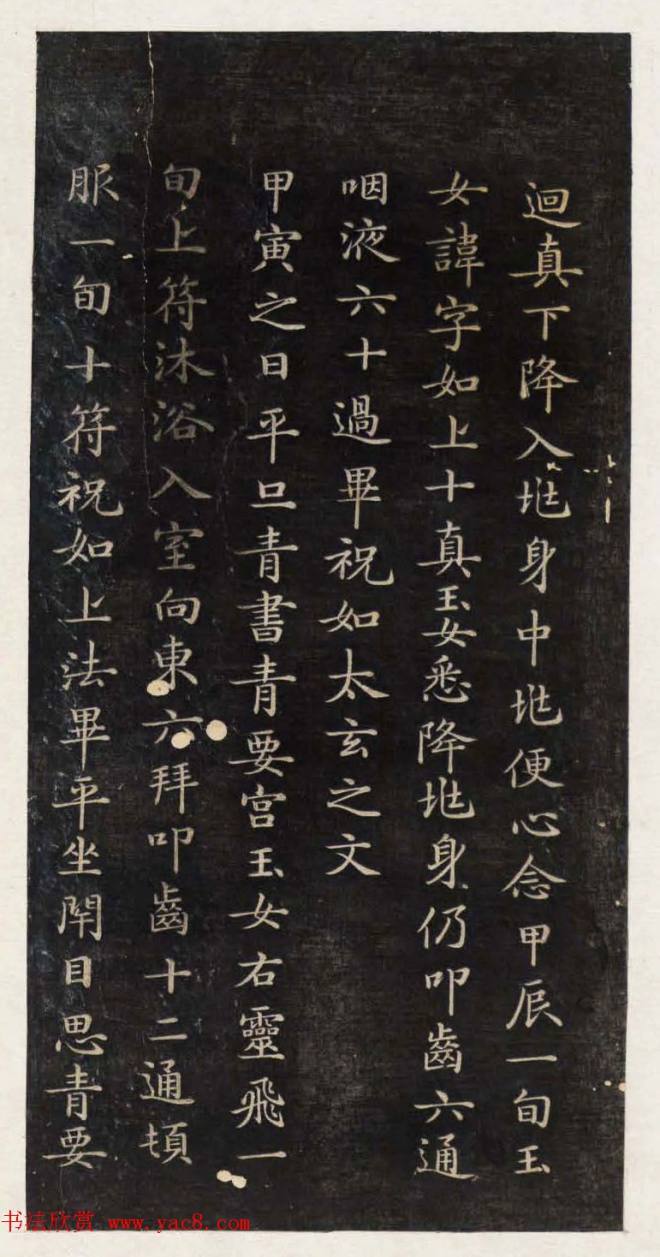 迴真下降入兆身中兆便心念甲辰一旬玉
女諱字如上十真玉女悉降兆身仍叩齒六通
咽液六十過畢祝如太玄之文
甲寅之日平旦青書青要宮玉女右靈飛一
旬上符沐浴入室向東六拜叩齒十二通頓
服一旬十符祝如上法畢平坐閉目思青要
书法欣赏 www.yac8.com